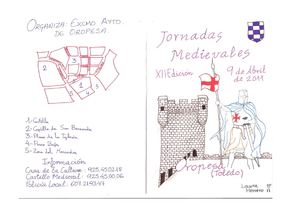 ORGANIZA: EXCMO AYTO.
DE OROPESA.
1-Castillo
2-Capilla de San Bernardo
3-Plaza de la Iglesia
4-Plaza Baja
5-Zona del Mercado
Información
Casa de la Cultura
Castillo Medieval
Policía Local
Jornadas
Medievales
XII Edición
9 de Abril
de 2011
Oropesa
(Toledo)
Laura